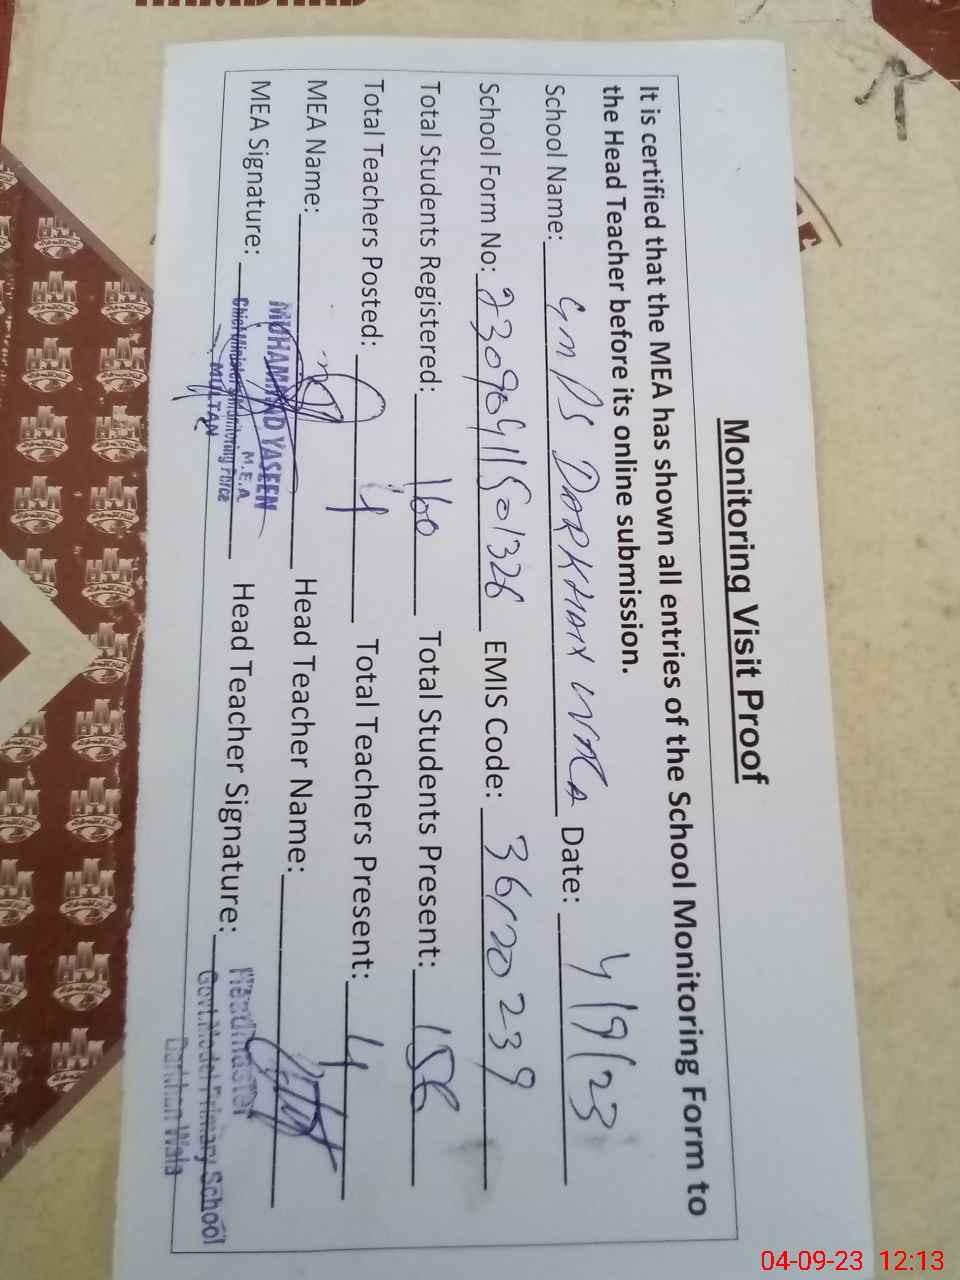 Monitoring Visit Proof
It is certified that the MEA has shown all entries of the School Monitoring Form to
the Head Teacher before its online submission.
School Name: GMPS DARKHAN WALA Date: 4/9/23
School Form No: EMIS Code: 36120239
Total Students Registered: 160 Total Students Present: 156
Total Teachers Posted: 4 Total Teachers Present: 4
MEA Name: Head Teacher Name:
MEA Signature: Head Teacher Signature:
MUHAMMAD YASEEN
M.E.A
Chief Minister's Monitoring Force
MULTAN
Headmaster
Govt.Model Primary School
Darkhan Wala
04-09-23 12:13